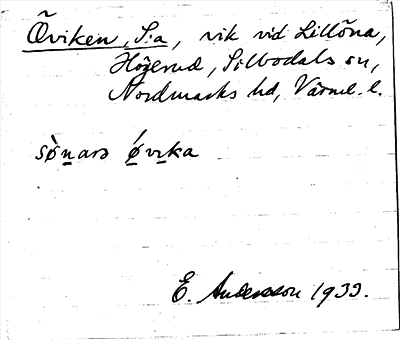 Öviken, S:a, vik vid Lillöna,
Högerud, Silbodals sn,
Nordmarks hd, Värml. l.
sø̀narə ǿvika
E. Andersson 1933.